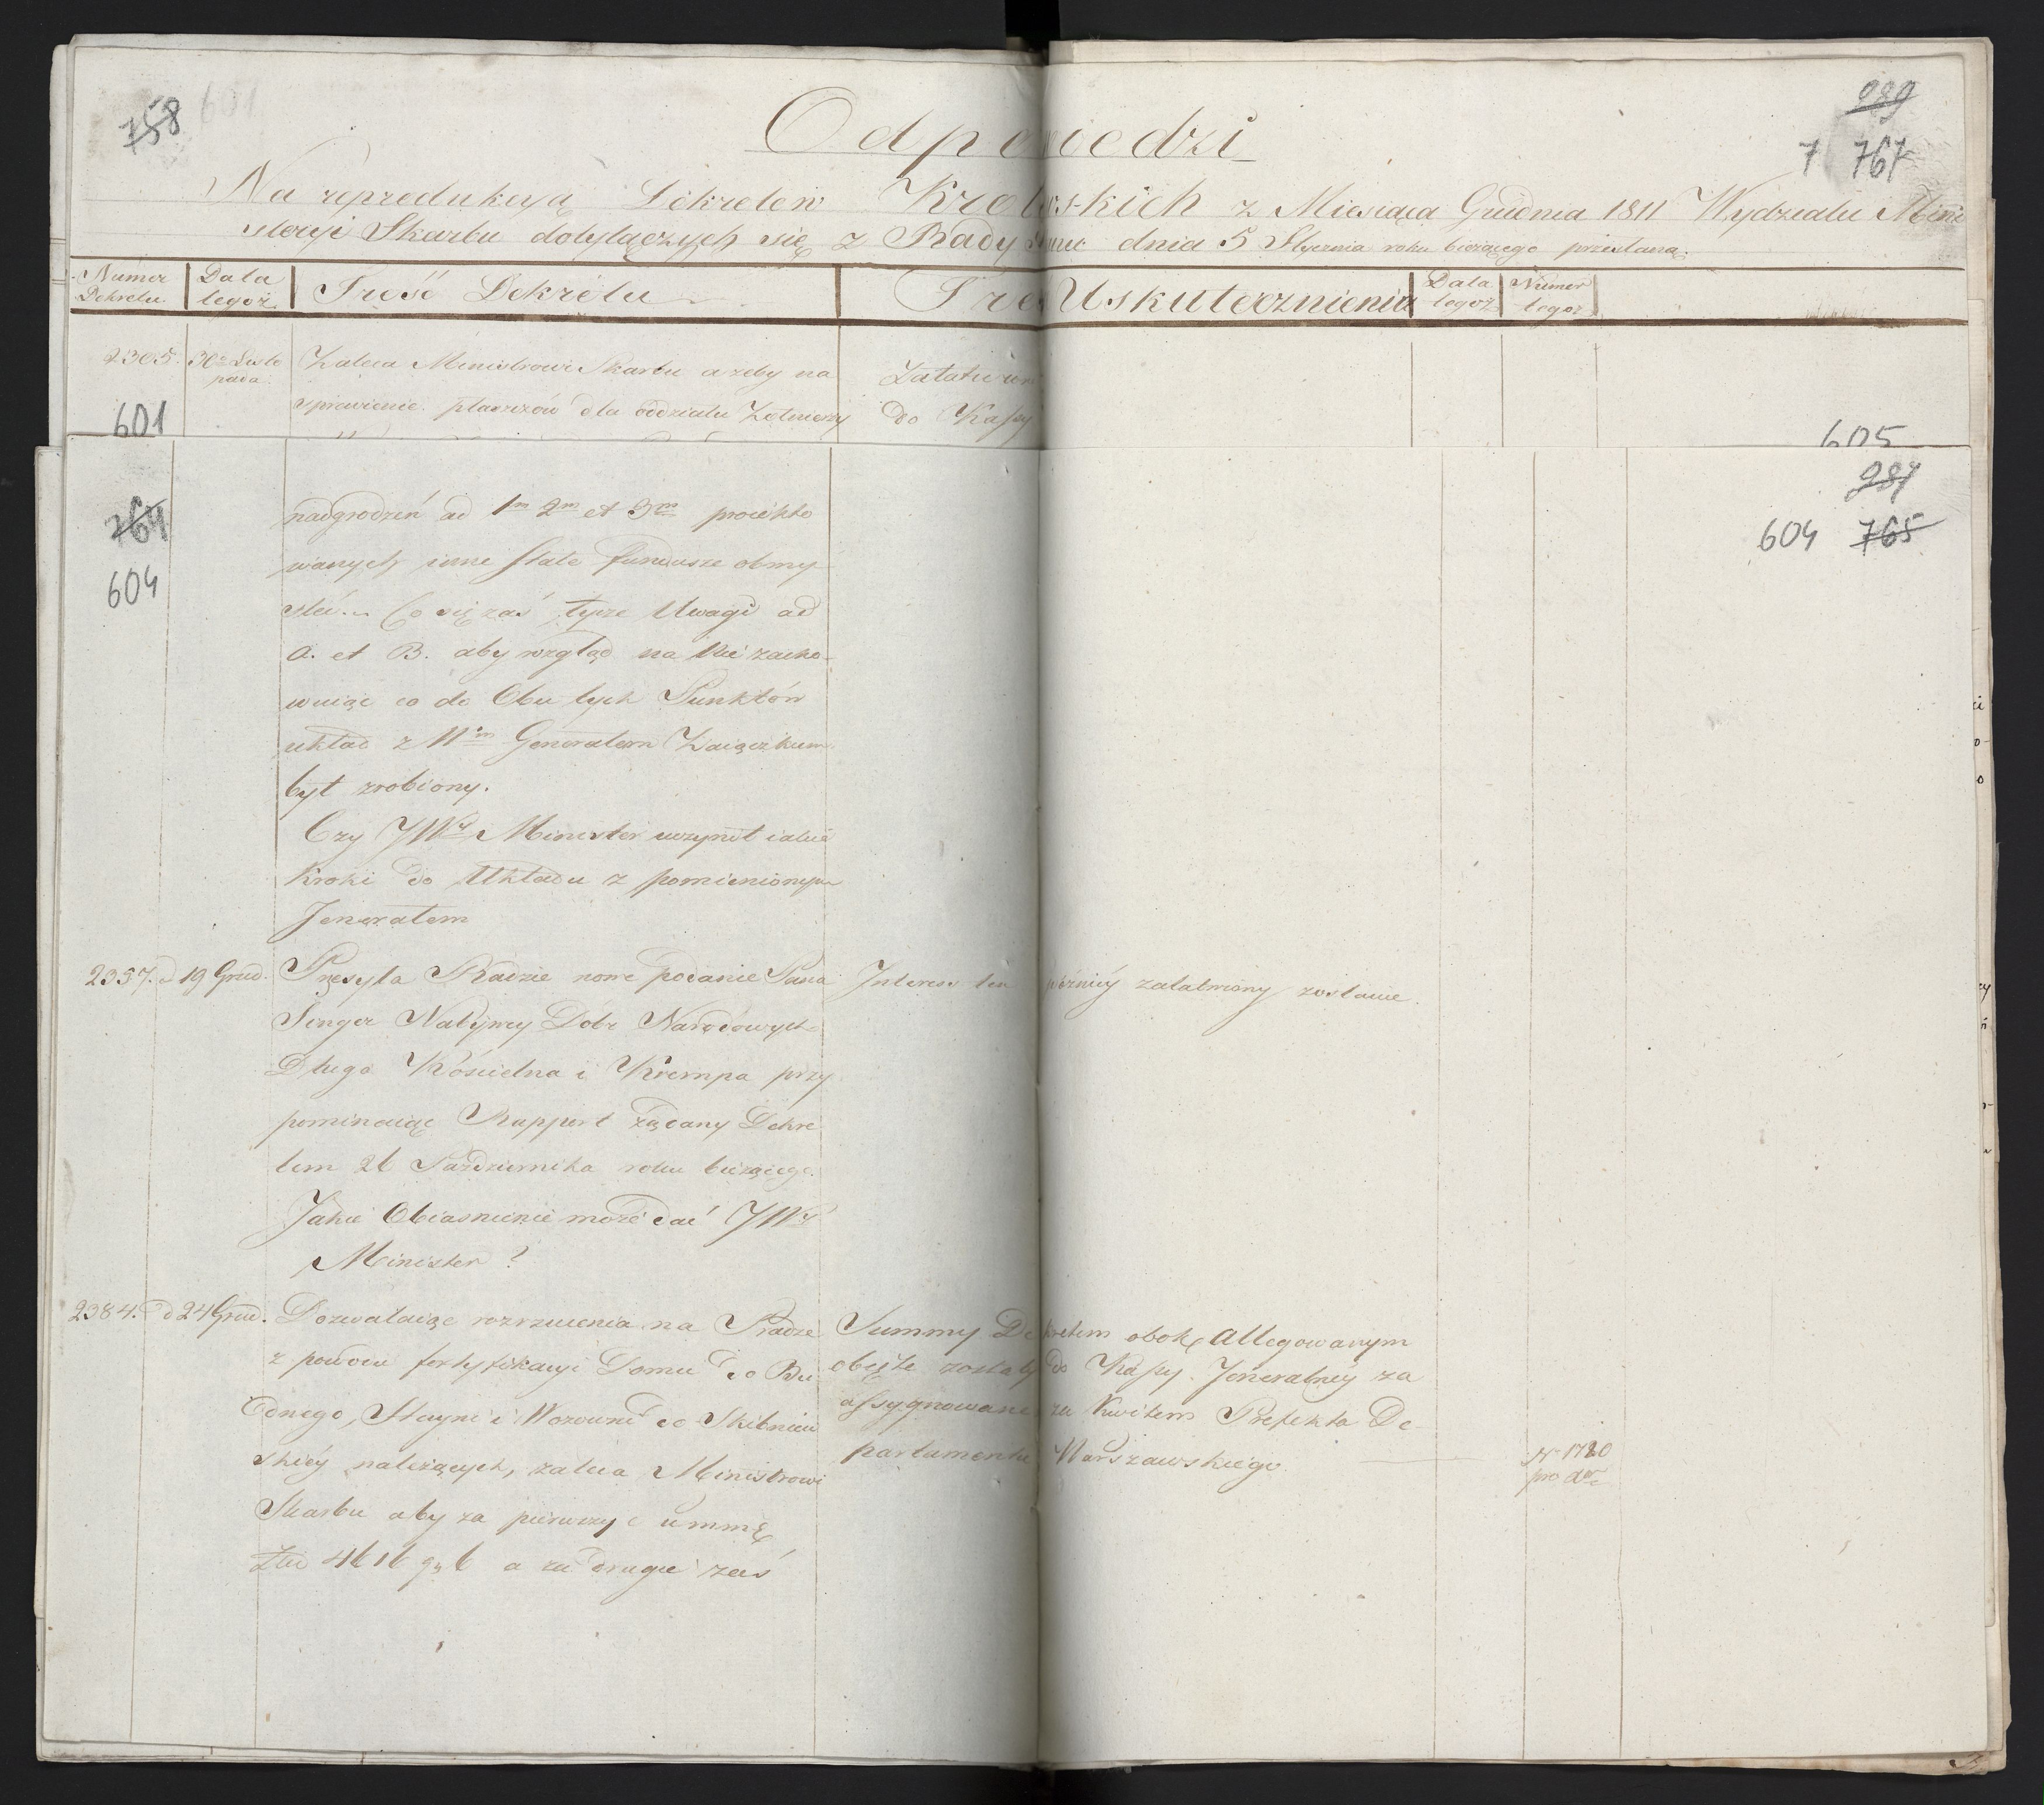 758 601
989
7 767
Odpowiedzi
Na reprodukcyą Dekretów Krolewskich z Miesiąca Grudnia 1811 Wydziału Mini
steryi Skarbu dotyłączych się z Rady Stanu dnia 5 Stycznia roku bieżącego przesłaną.
Numer Dekretu | Data tegoż | Treść Dekretu | Treść Uskutecznienia | Data tegoż | Numer tegoż
2305. 30 Listo
pada
Zaleca Ministrowi Skarbu ażeby na
sprawienie płaszczów dla oddziału Żołnierzy
do Kassy
601
605
764
604
987
604 765
nadgrodzeń ad 1m 2m et 3m proiekto
wanych inne stałe fundusze obmy
ślił. Co się zaś tycze Uwagi ad
A. et B. aby wzgląd na nie zacho
wuiąc co do Obu tych Punktów
układ z Generałem Zaiączkiem
był zrobiony.
Czy JWy Minister uczynił iakie
kroki do Układu z pomienionym
Jenerałem
2357. d 19 Grud. Przesyła Radzie nowe podanie Pana
Singer Nabywcy Dobr Narodowych
Długa Kościelna i Krempa przy
pominaiąc Rapport żądany Dekre
tem 26 Pazdziernika roku bieżącego.
Jakie Obiasnienie może dać JWy
Minister?
Interess ten późniéy załatwiony zostanie.
2384. d 24 Grud. Dozwalaiąc rozrzucenia na Pradze
z powodu fortyfikacyi Domu do Bu
dnego, Stayni i Wozowni do Skibniew
skiéy należących, zaleca Ministrowi
Skarbu aby za pierwszy summę
Złt 4616 gr 6 a za drugie zaś
Summy Dekretem obok allegowanym
obięte zostały do Kassy Jeneralnéy za
assygnowane za Kwitem Prefekta De
partamentu Warszawskiego.
N 1780
pro Dec